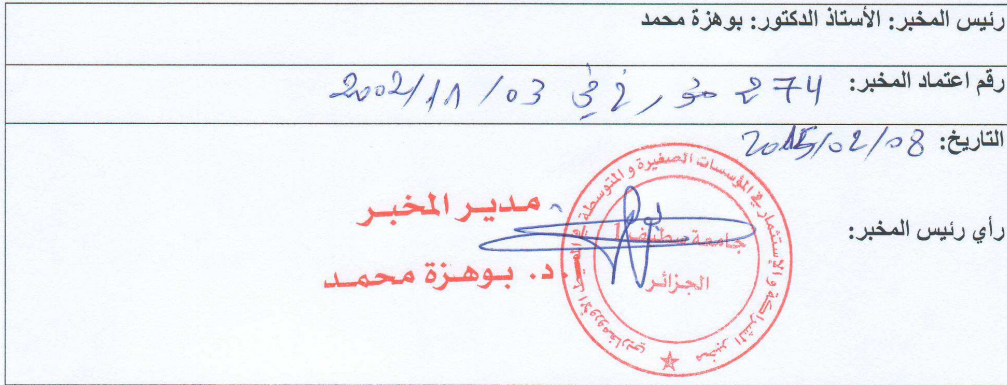 رئيس المخبر: الأستاذ الدكتور: بوهزة محمد
رقم اعتماد المخبر: 274 مؤرخ في 2002/11/03
التاريخ: 2015/02/08
رأي رئيس المخبر:
مدير المخبر
د. بوهزة محمد
مخبر الشراكة و الإستثمار في المؤسسات الصغيرة و المتوسطة في الفضاء الأورومغاربي
جامعة سطيف 1
الجزائر